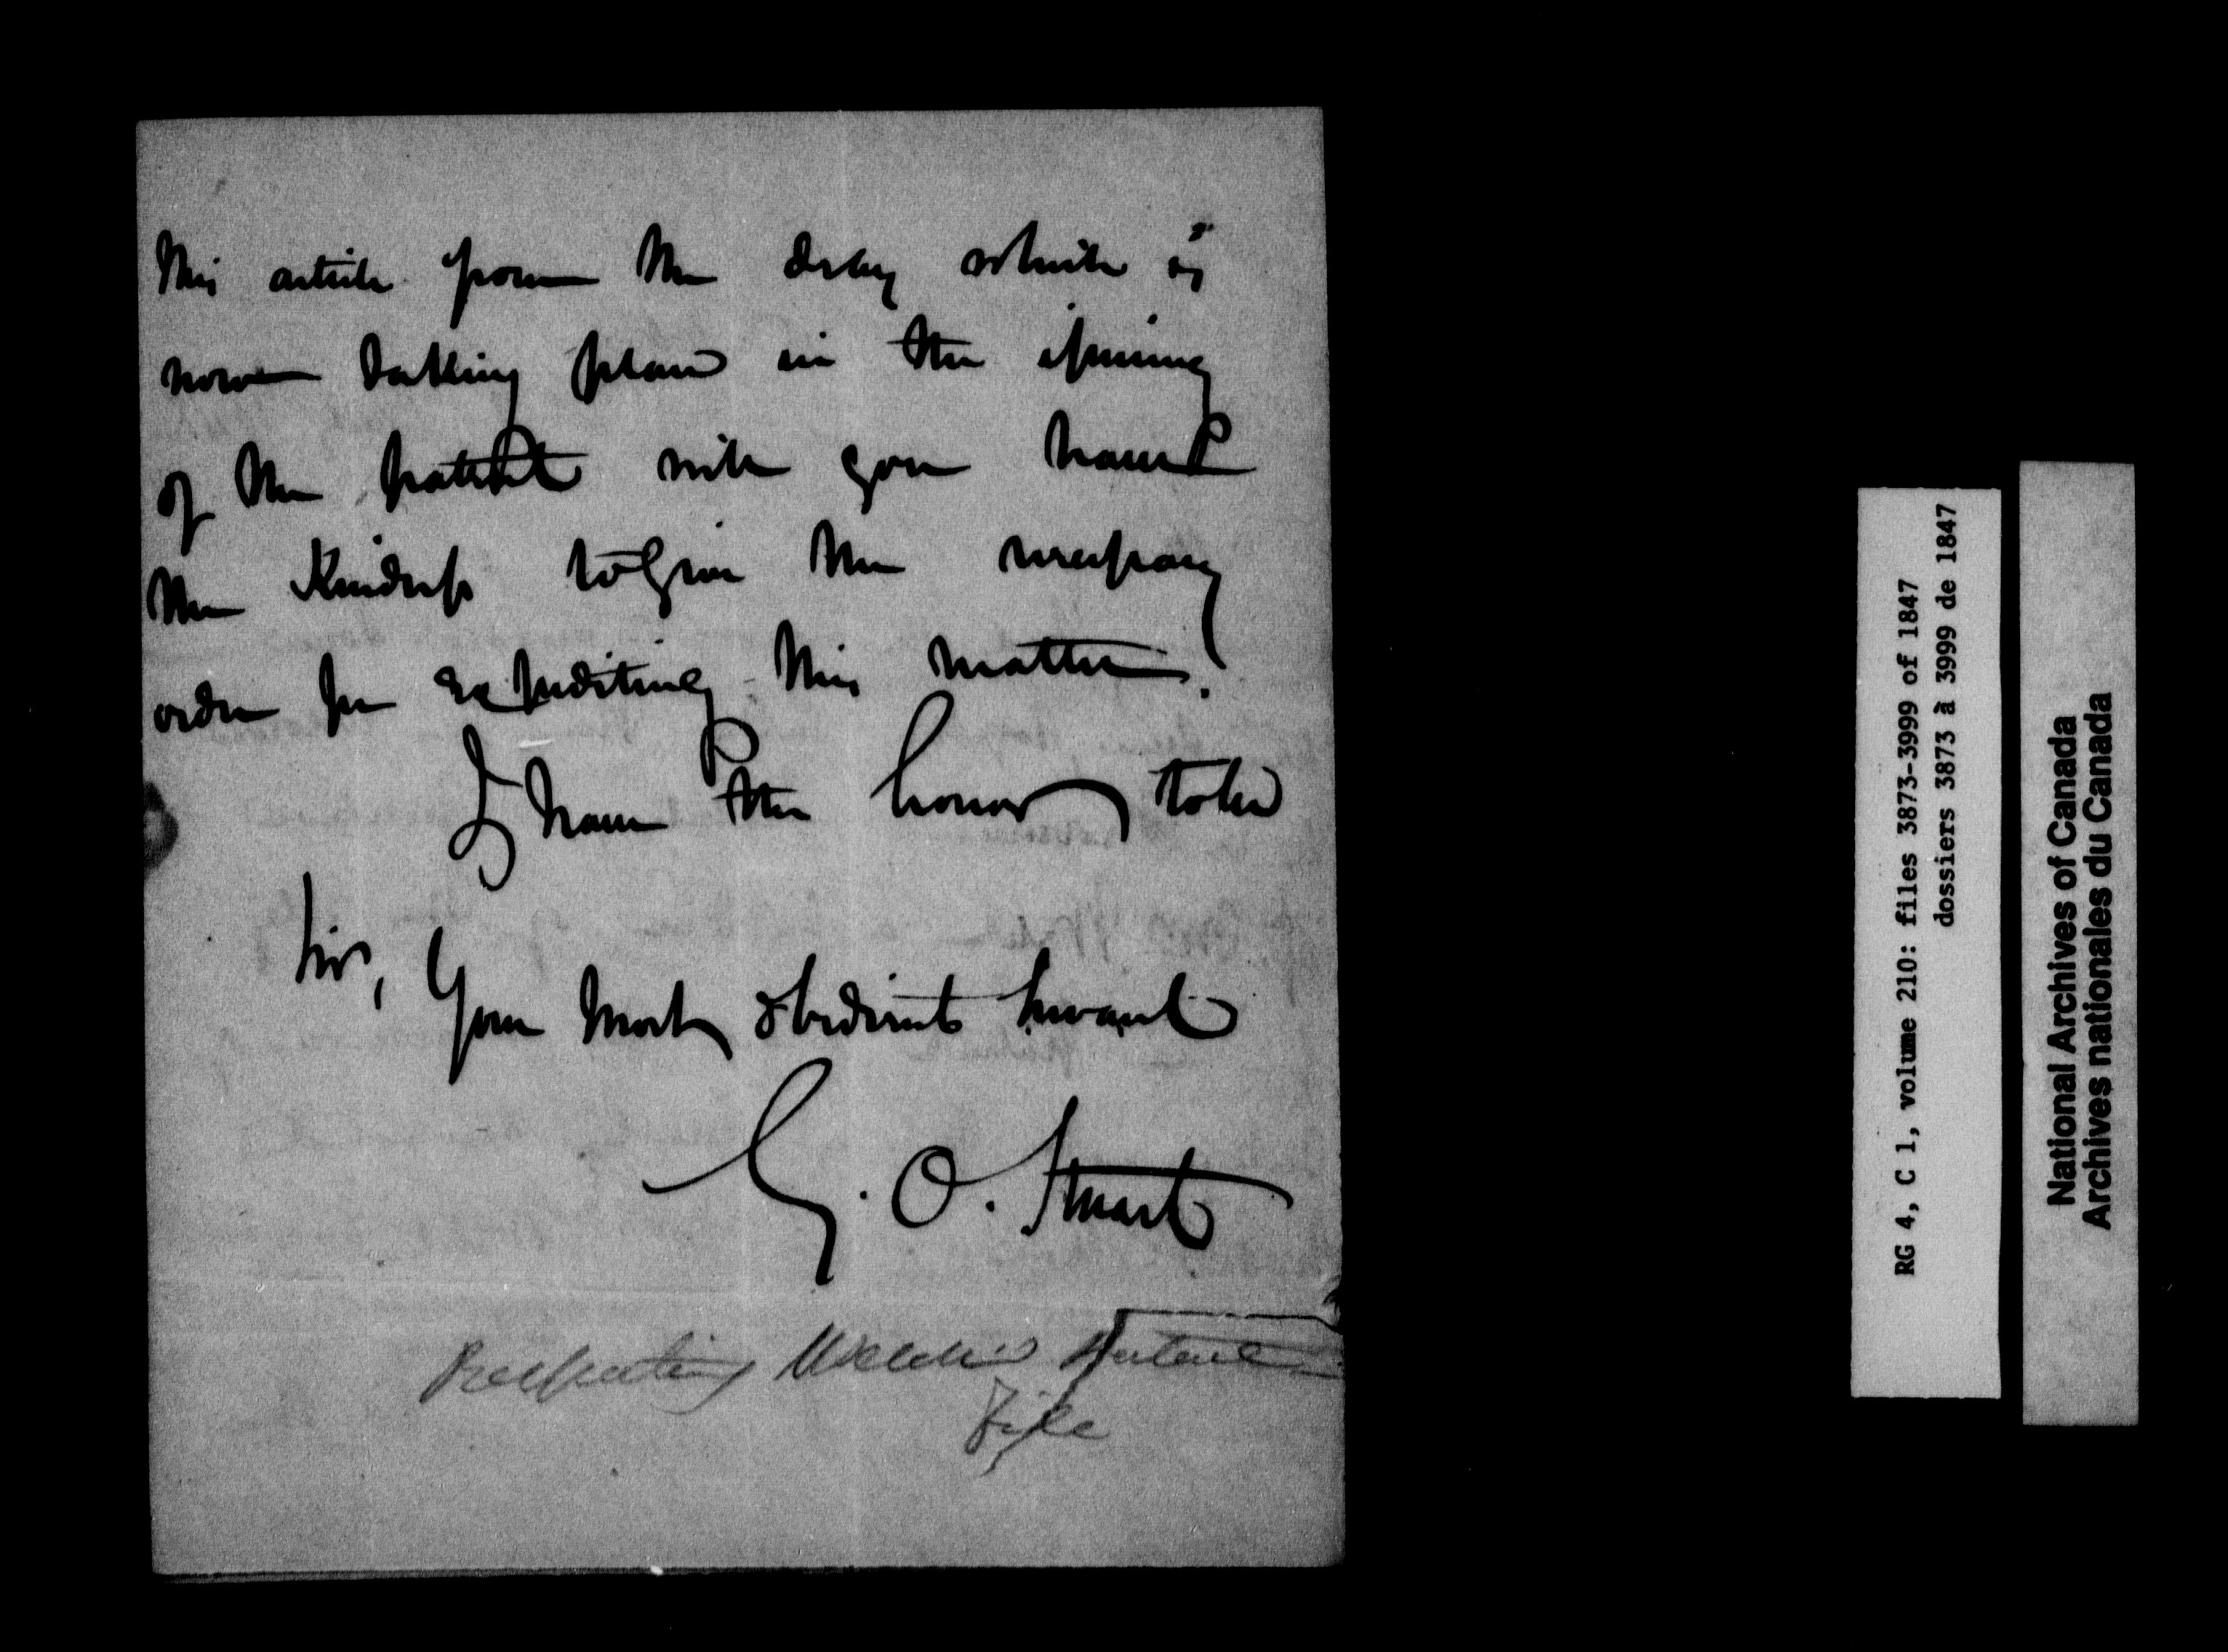 this article from the delay which is
now taking place in the issuing
of the patent will you have
the Kindness to give the necessary
order for expediting this matter.
I have the honor to be
Sir, Your most obedient servant
G. O. Stuart
Respecting Welch's Patent
File
RG 4, C 1, volume 210: files 3873-3999 of 1847
dossiers 3873 à 3999 de 1847
National Archives of Canada
Archives nationales du Canada